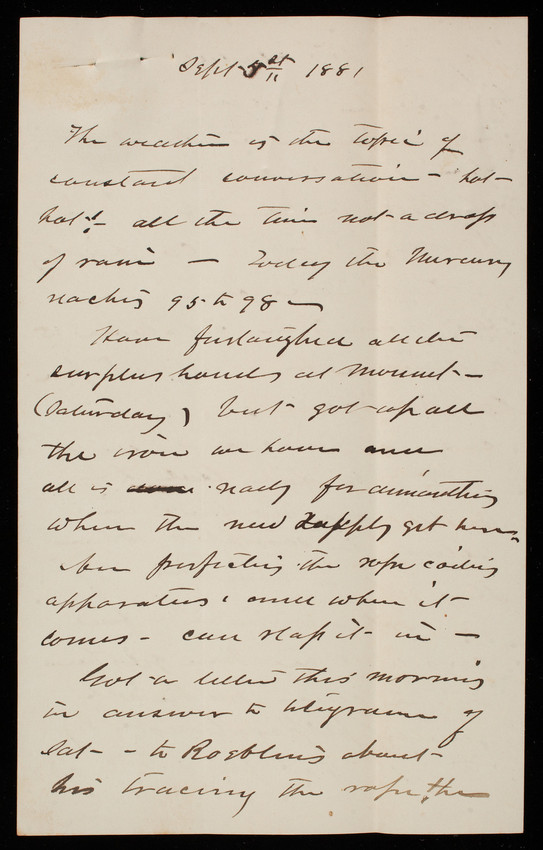 Sept 1881
The weather is the topic of
constant conversation - hot -
hot! - all the time not a drop
of rain - Today the Mercury
reaches 95 to 98 -
Have furloughed all the
surplus hands at Monument -
(Saturday) but got up all
the iron we have and
all is ready for
when the new supply get here -
Am perfecting the rope coiling
apparatus & and when it
comes - can slap it in -
Got a letter this morning
in answer to telegram of
Sat - to Roeblins about
his tracing the rope, the